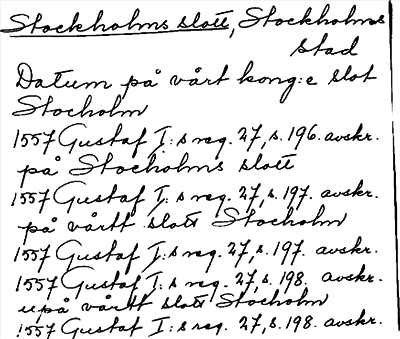 Stockholms slott, Stockholms
stad
Datum på vårt kong:e slot
Stocholm
1557 Gustaf I:s reg. 27, s. 196. avskr.
på Stocholms slott
1557 Gustaf I:s reg. 27, s. 197. avskr.
på vårtt slott Stocholm
1557 Gustaf I:s reg. 27, s. 197. avskr.
1557 Gustaf I:s reg. 27, s. 198. avskr.
upå vårtt slott Stocholm
1557 Gustaf I:s reg. 27, s. 198. avskr.